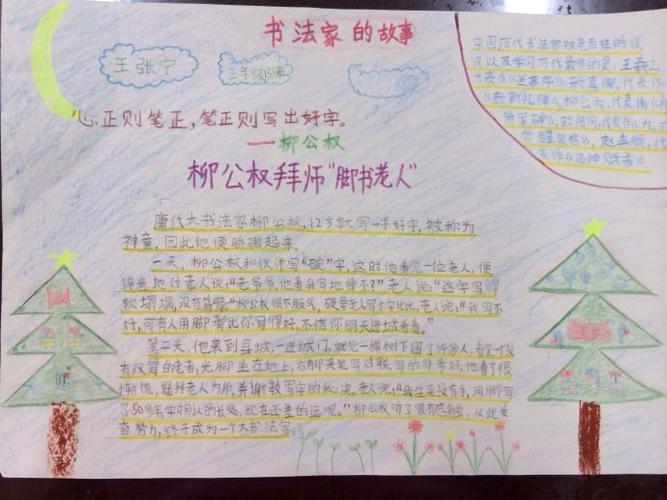 书法家的故事
王张宁
三年级
心正则笔正,笔正则写出好字。
——柳公权
柳公权拜师"脚书老人"
唐代大书法家柳公权,12岁就写一手好字,被称为
神童,因此他便骄傲起来。
一天,柳公权和伙伴写"碗"字,这时他看见一位老人,便
得意地对老人说:"老爷爷,你看我写地棒不?"老人说:"这字写得
软塌塌,没有筋骨。"柳公权很不服气,硬要老人写个字比比,老人说:"我写不
好,可有人用脚都比你写得好,不信你明天进城看看。"
第二天,他来到县城,一进城门,就见一棵树下围了许多人,看见一个没
有双臂的老者,光脚坐在地上,右脚夹笔写对联,写的非常好,他看了很
惭愧,就拜老人为师,并请教写字的秘诀,老人说:"我生来没有手,用脚写
了50多年,学习别人的长处,现在还差的远呢。"柳公权听了很有感触,从此发
奋努力,终于成为一个大书法家。
中国历代书法
说以及学习历代最多的是,王羲之
代表作《兰亭序》,颜真卿,代表作
《勤礼碑》,柳公权,代表作《
》,欧阳询,代表作《九
宫醴泉铭》,赵孟頫,代
表作《洛神赋》